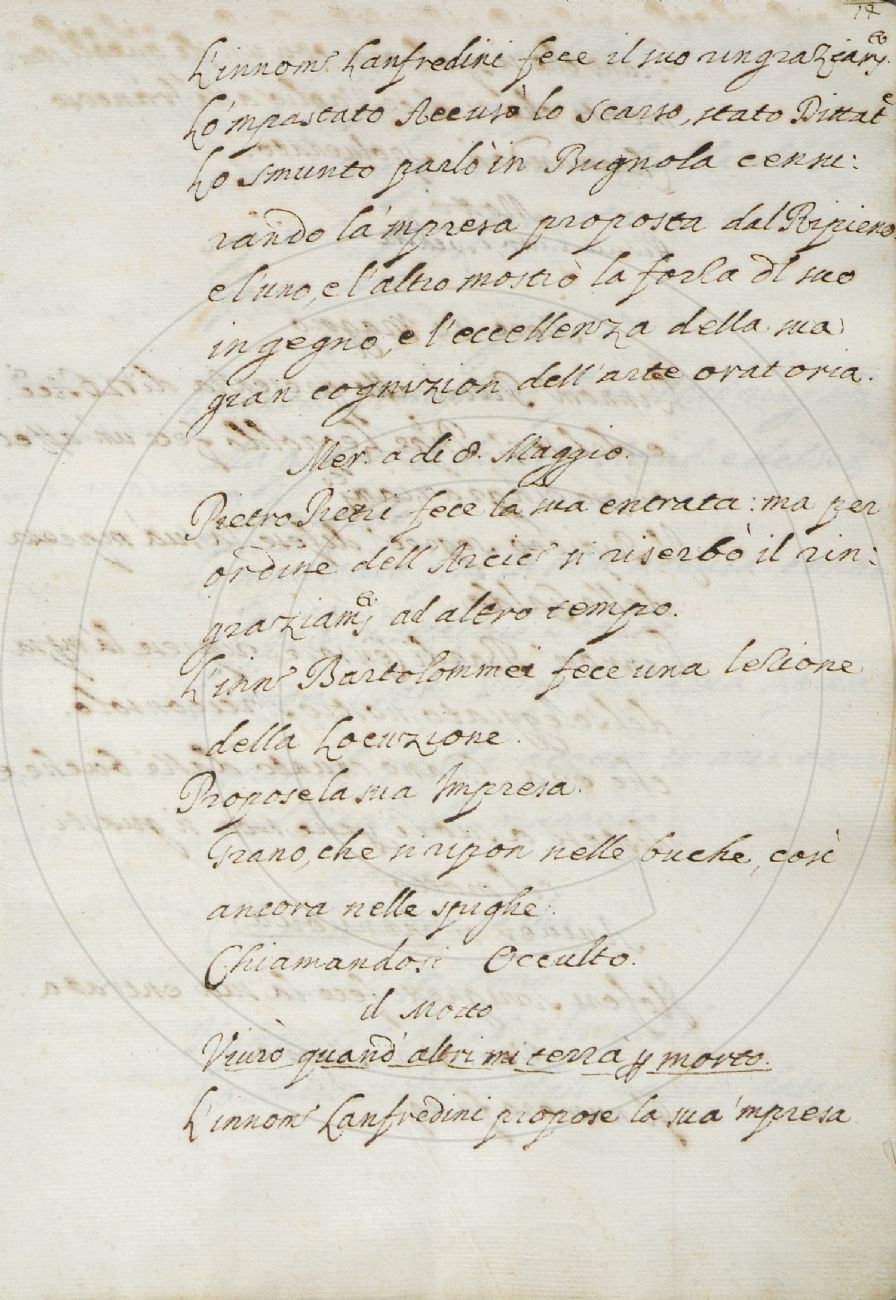 14
L'innom.º Lanfredini fece il suo ringraziam.to
Lo 'mpastato Accusò lo Scarso, stato Dittat.e
Lo Smunto parlò in Bugnola censu:
rando la 'mpresa proposta dal Ripieno
e l'uno, e l'altro mostrò la forza dl suo
ingegno, e l'eccellenza della sua
gran cognizion dell'arte oratoria.
Mer. a di 8. Maggio.
Pietro Pieri fece la sua entrata: ma per
ordine dell'Arcic.º si riserbò il rin:
graziam.to ad altro tempo.
L'inn.º Bartolommei fece una lezione
della Locuzione.
Propose la sua Impresa.
Grano, che si ripon nelle buche, così
ancora nelle spighe.
Chiamandosi Occulto.
il Motto
Viurò quand' altri mi terrà p morto.
L'innom.º Lanfredini propose la sua 'mpresa